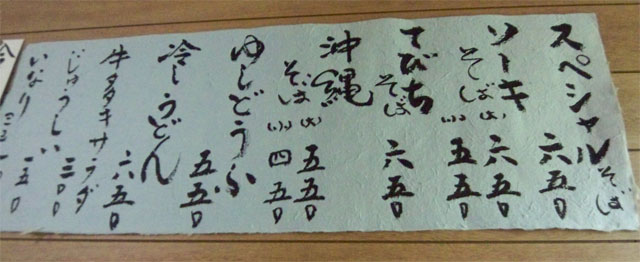 スペシャルそば 六五〇
ソーキそば(大) 六五〇
(小) 五五〇
てびちそば 六五〇
沖縄そば(大) 五五〇
そば(小) 四五〇
ゆしどうふ 五五〇
冷しうどん
牛タタキサラダ 六五〇
じゅうしい 三〇〇
いなり 一五〇
冷